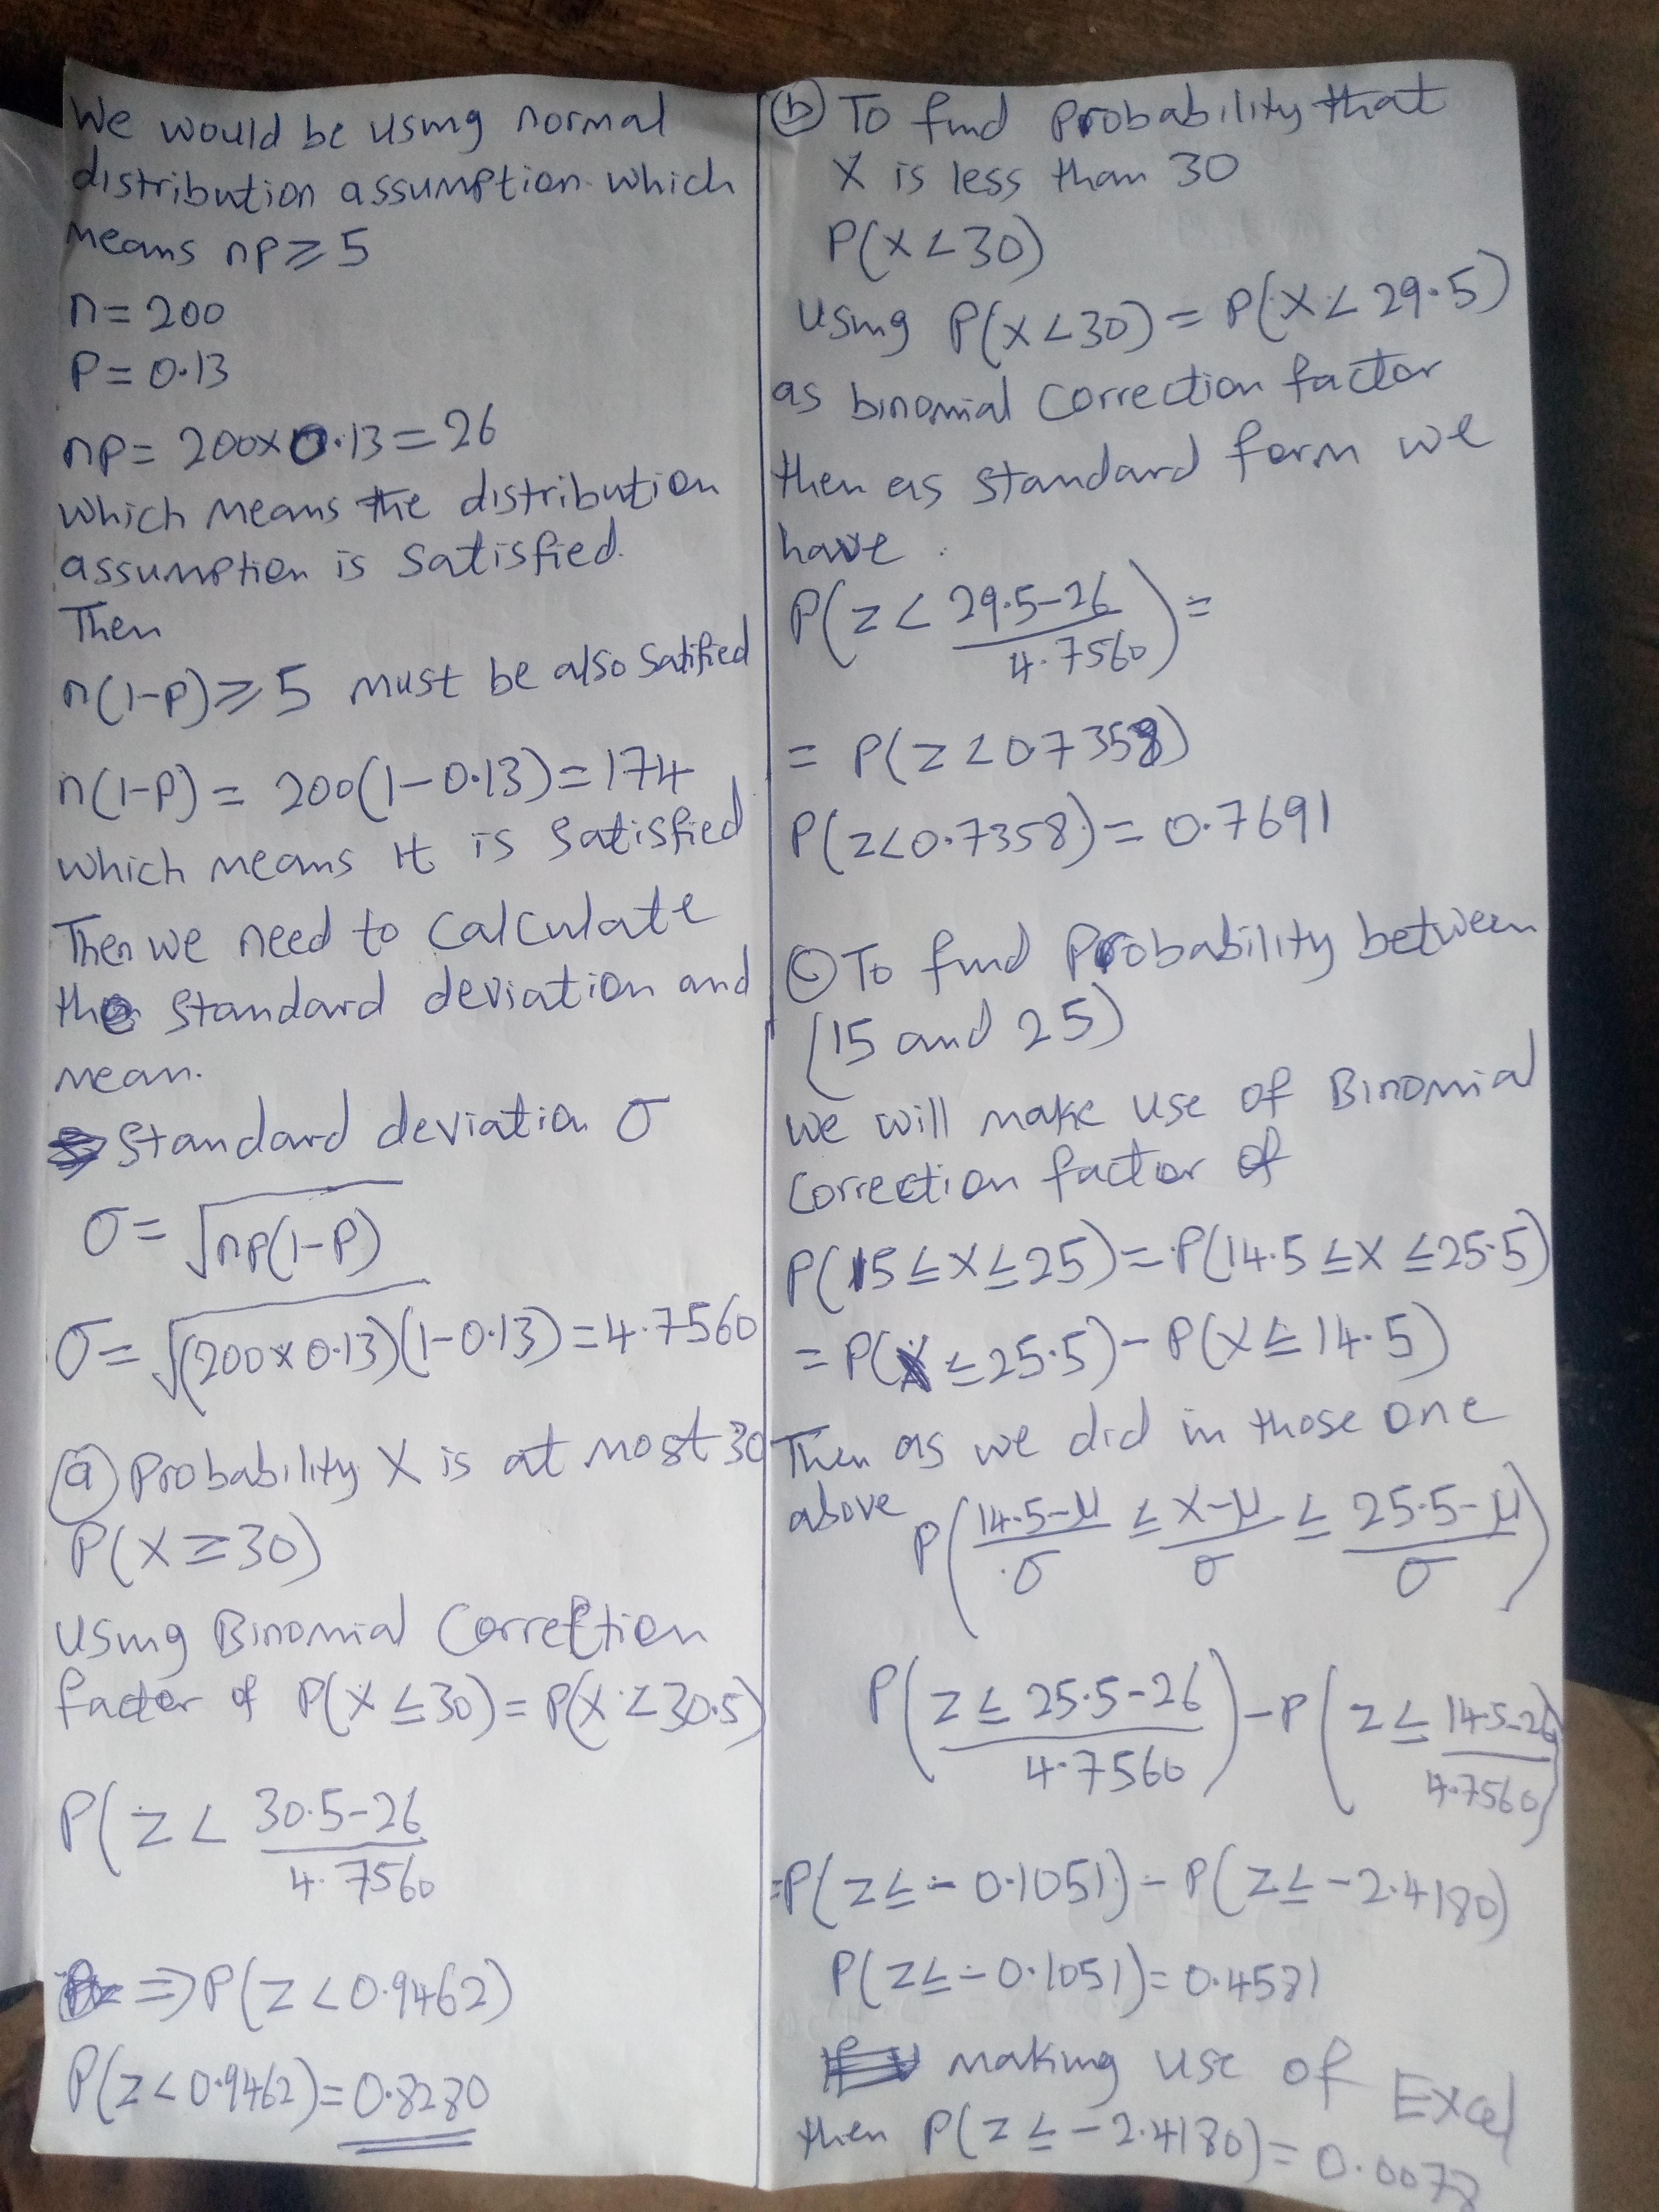 We would be using normal
distribution assumption which
means np ≥ 5
n = 200
P = 0.13
np = 200 × 0.13 = 26
which means the distribution
assumption is satisfied.
Then
n(1-P) ≥ 5 must be also satified
n(1-P) = 200(1-0.13) = 174
which means it is satisfied
Then we need to calculate
the standard deviation and
mean.
Standard deviation σ
σ = √np(1-P)
σ = √(200 × 0.13)(1-0.13) = 4.7560
(a) Probability X is at most 30
P(X ≥ 30)
Using Binomial Correction
factor of P(X ≤ 30) = P(X < 30.5)
P(Z < 30.5-26/4.7560
⇒ P(Z < 0.9462)
P(Z < 0.9462) = 0.8280
(b) To find Probability that
X is less than 30
P(X < 30)
using P(X < 30) = P(X < 29.5)
as binomial correction factor
then as standard form we
have
P(Z < 29.5-26/4.7560) =
= P(Z < 0.7358)
P(Z < 0.7358) = 0.7691
(c) To find Probability between
(15 and 25)
We will make use of Binomial
correction factor of
P(15 ≤ X ≤ 25) = P(14.5 ≤ X ≤ 25.5)
= P(X ≤ 25.5) - P(X ≤ 14.5)
Then as we did in those one
above P(14.5-μ/σ ≤ X-μ/σ ≤ 25.5-μ/σ)
P(Z ≤ 25.5-26/4.7560) - P(Z ≤ 14.5-26/4.7560)
= P(Z ≤ -0.1051) - P(Z ≤ -2.4180)
P(Z ≤ -0.1051) = 0.4581
making use of Excel
then P(Z ≤ -2.4180) = 0.0078